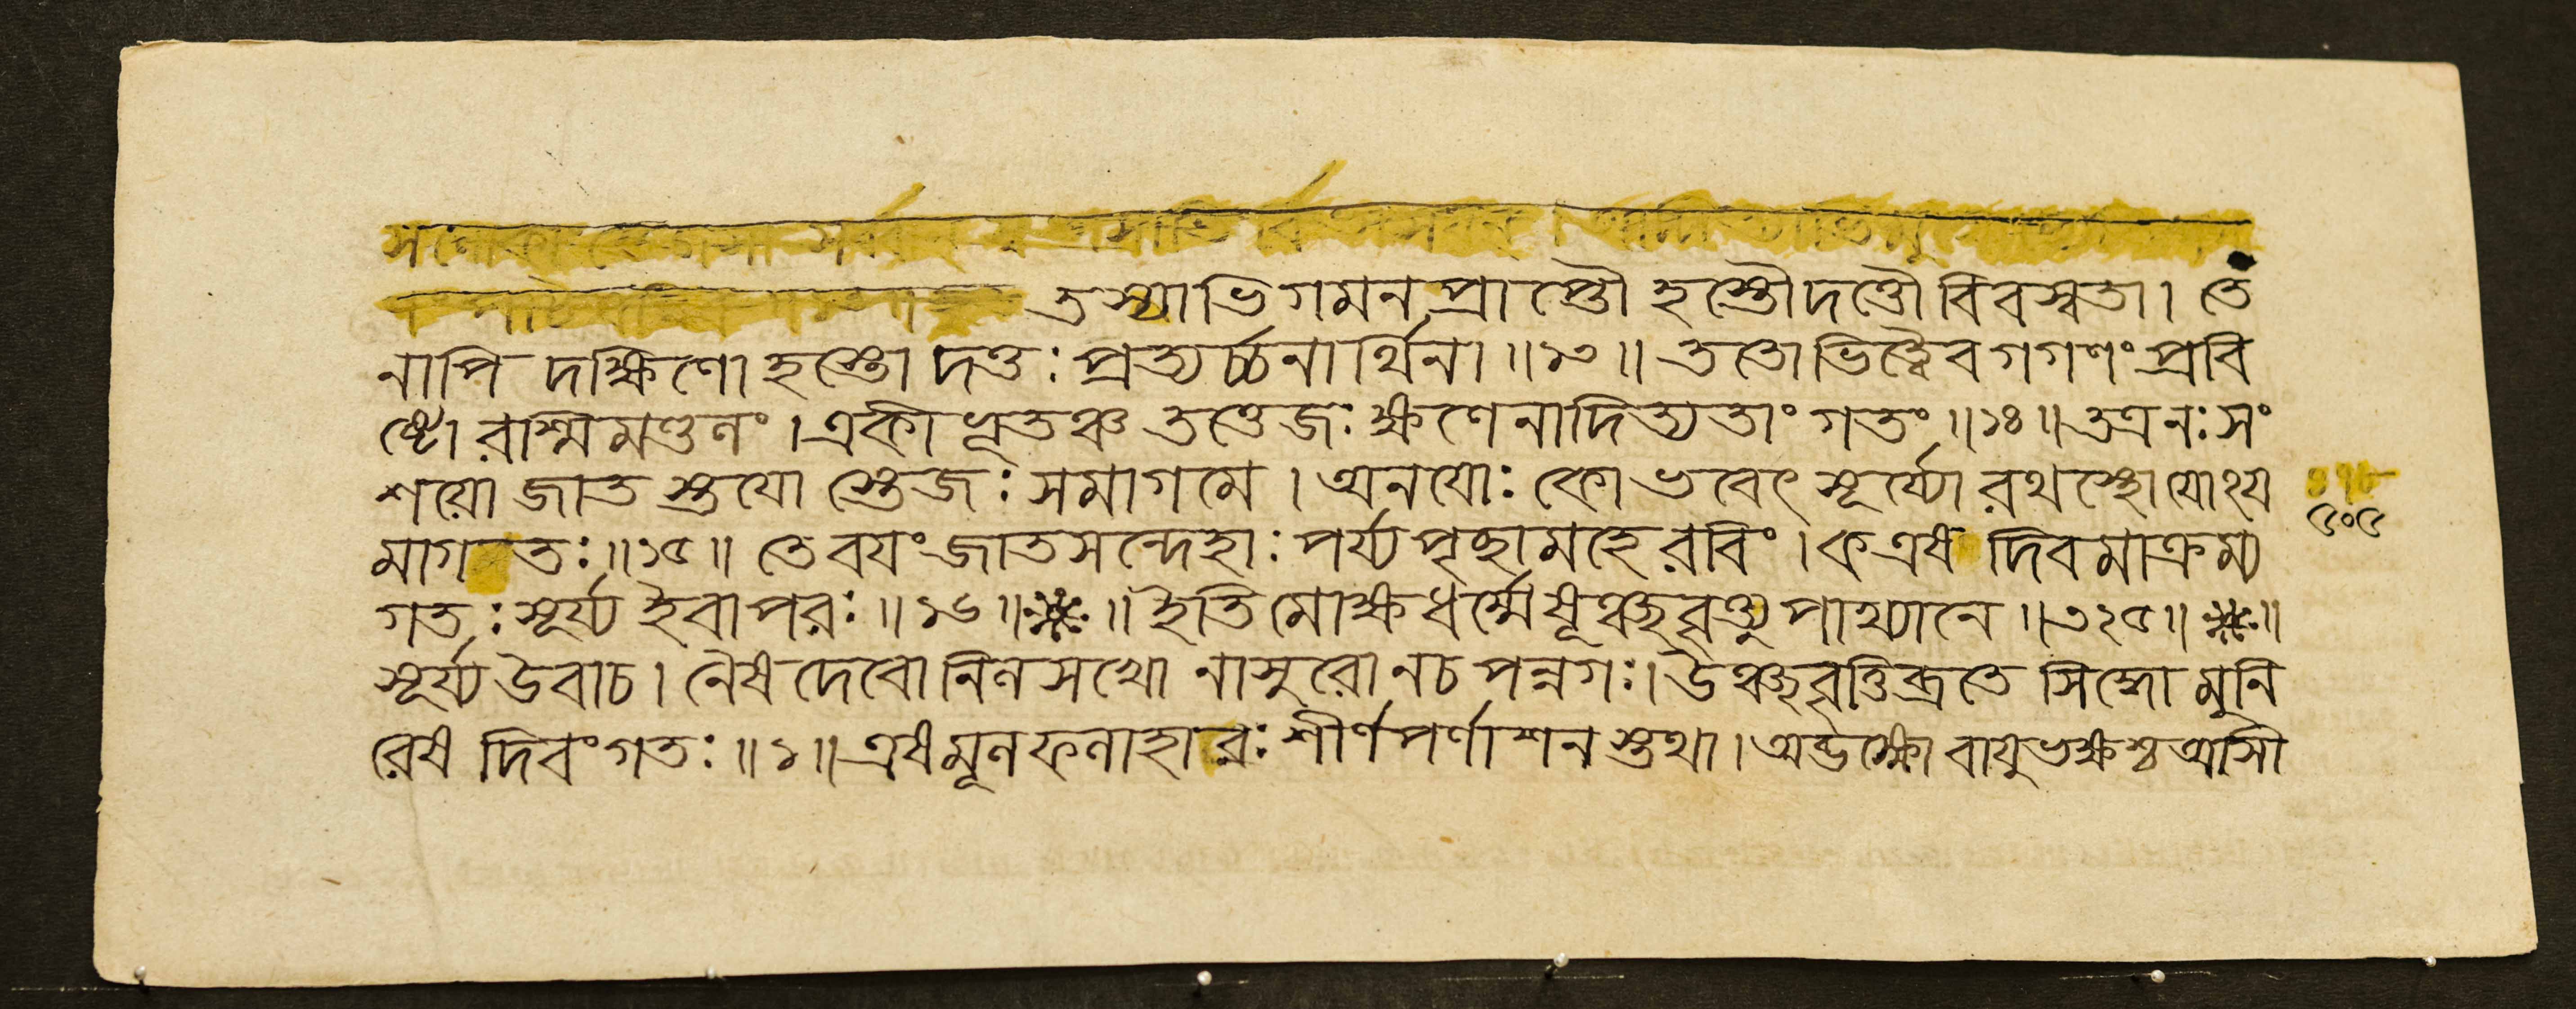 তস্যাভিগমনপ্রাপ্তৌ হস্তৌ দত্তৌ বিবস্বতা। তে
নাপি দক্ষিণো হস্তো দত্তঃ প্রত্যর্চ্চনার্থিনা॥১৩॥ ততো ভিত্ত্বৈব গগণং প্রবি
ষ্টো রশ্মিমণ্ডলং। একীভূতঞ্চ তত্তেজঃ ক্ষণেনাদিত্যতাং গতং॥১৪॥ তত্র নঃ সং
শয়ো জাতস্তয়ো স্তেজঃ সমাগমে। অনয়োঃ কো ভবেৎ সূর্য্যো রথস্থো যোঽয়
মাগতঃ॥১৫॥ তে বয়ং জাতসন্দেহাঃ পর্য্যপৃচ্ছামহে রবিং। ক এষ দিবমাক্রম্য
গতঃ সূর্য্য ইবাপরঃ॥১৬॥※॥ ইতি মোক্ষধর্ম্মেষূঞ্ছবৃত্ত্যুপাখ্যানে॥৩২৫॥※॥
সূর্য্য উবাচ। নৈষ দেবোনিলসখো নাসুরো ন চ পন্নগঃ। উঞ্ছবৃত্তিব্রতে সিদ্ধো মুনি
রেষ দিবং গতঃ॥১॥ এষ মূলফলাহারঃ শীর্ণপর্ণাশনস্তথা। অব্ভক্ষো বায়ুভক্ষশ্চ আসী
৫০৫